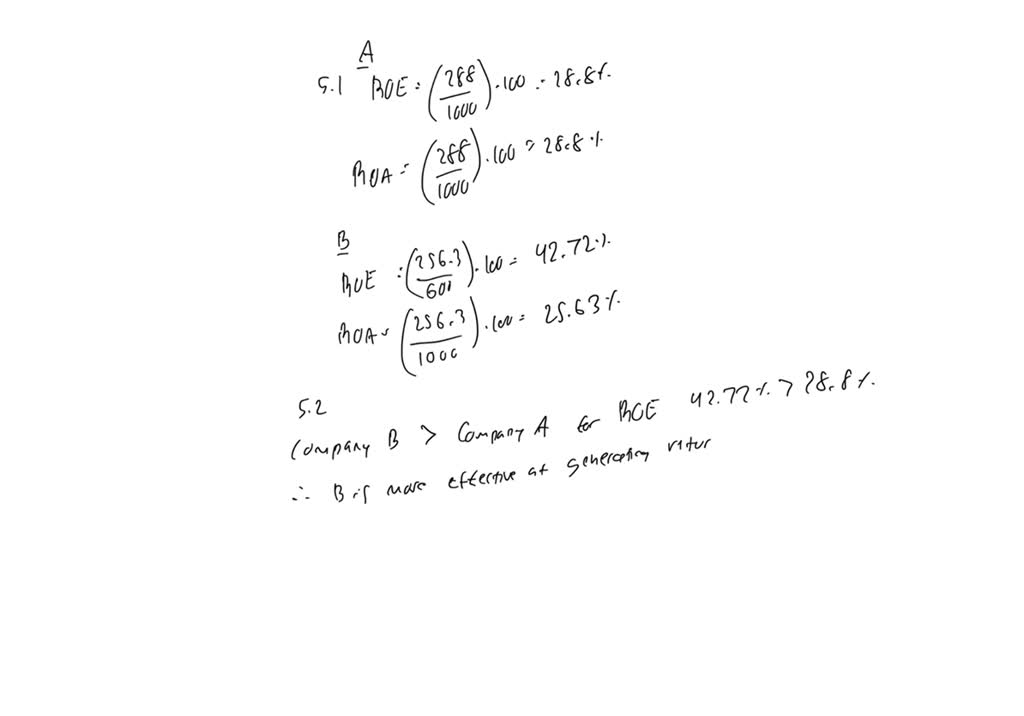 A
5.1 ROE = (288/1000) · 100 = 28.8%
ROA = (288/1000) · 100 = 28.8%
B
ROE = (256.3/600) · 100 = 42.72%
ROA = (256.3/1000) · 100 = 25.63%
5.2
Company B > Company A for ROE 42.72% > 28.8%
∴ B is more effective at generating retur